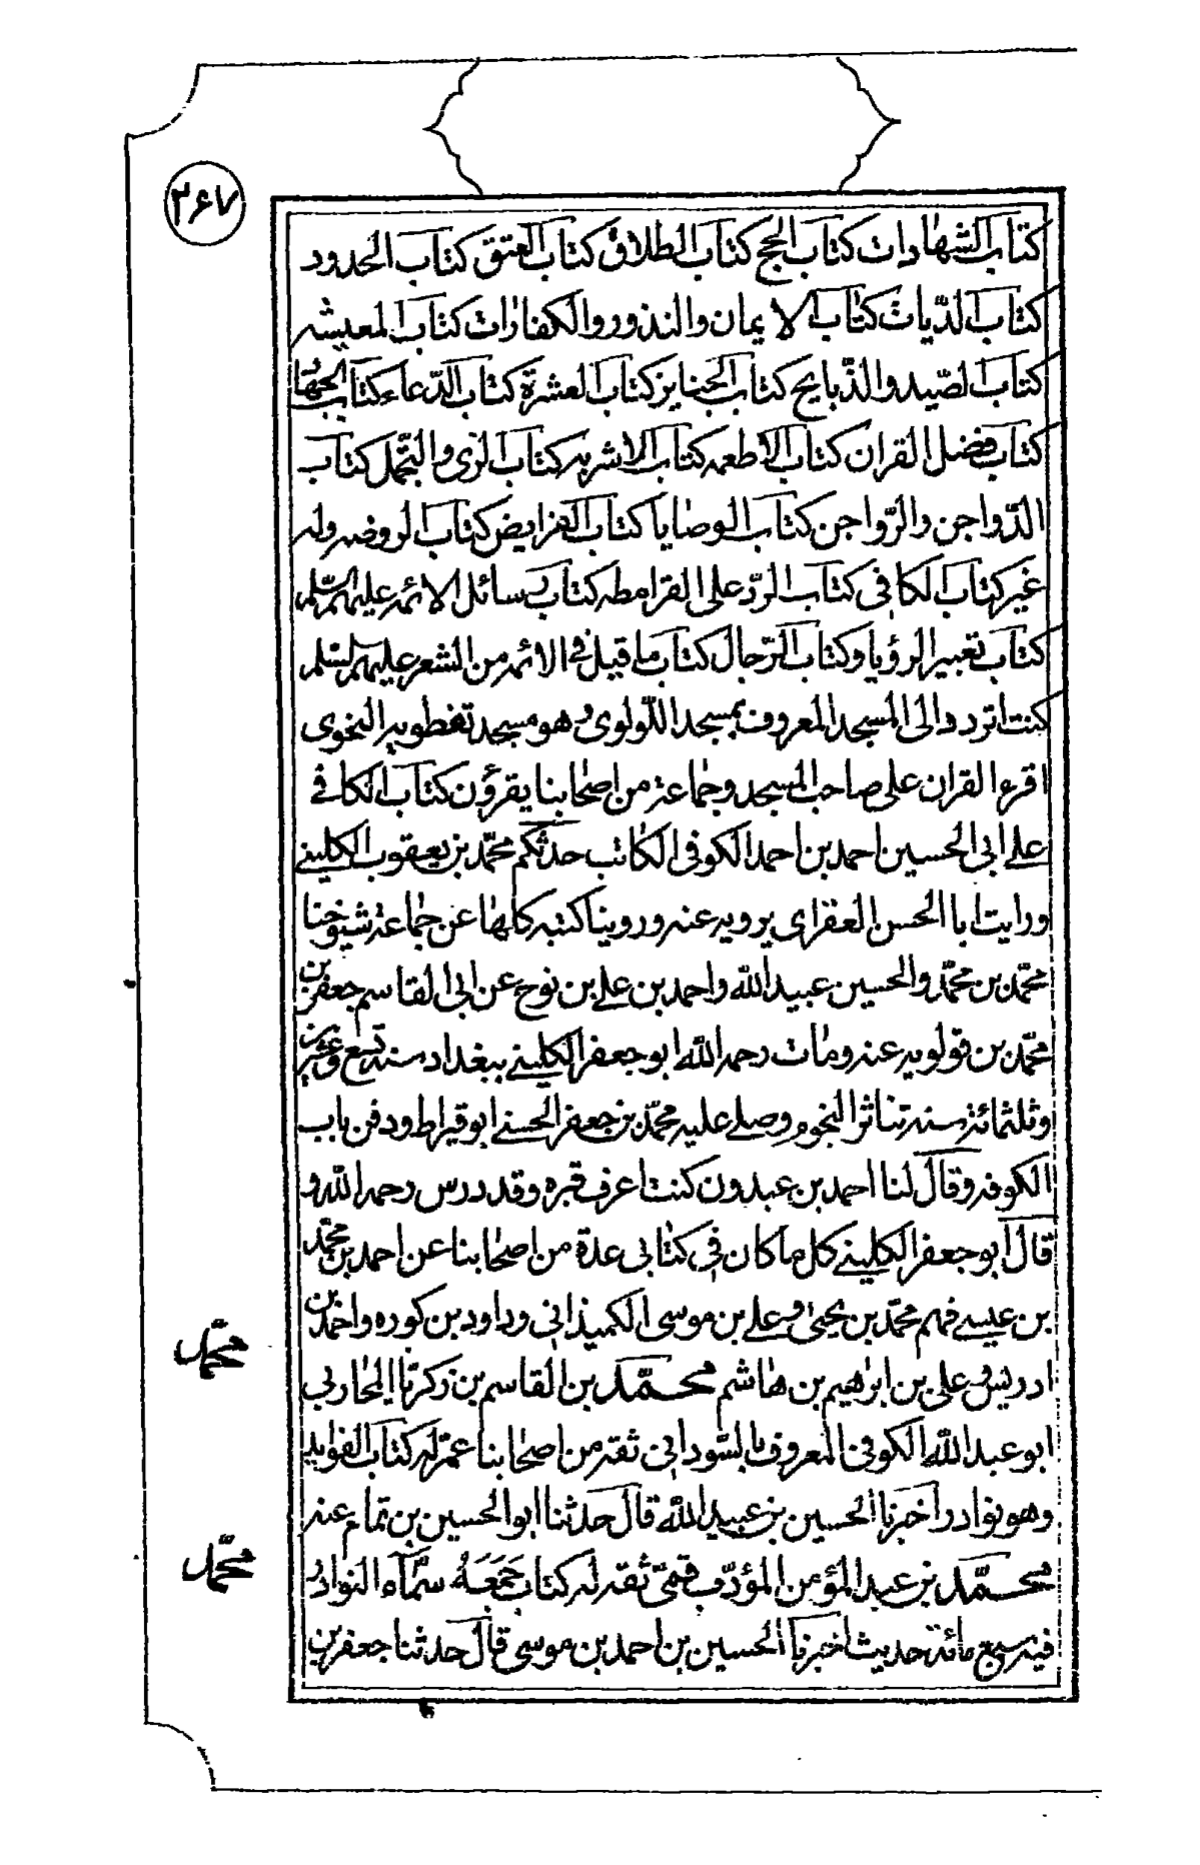 ۲۶۷
كتاب الشهادات كتاب الحج كتاب الطلاق كتاب العتق كتاب الحدود
كتاب الديات كتاب الايمان والنذور والكفارات كتاب المعيشه
كتاب الصيد والذبايح كتاب الجنايز كتاب العشرة كتاب الدعاء كتاب الجهاد
كتاب فضل القران كتاب الاطعمه كتاب الاشربه كتاب الزى والتجمل كتاب
الدواجن والرواجن كتاب الوصايا كتاب الفرايض كتاب الروضه وله
غير كتاب الكافى كتاب الرد على القرامطه كتاب رسائل الائمه عليهم السلم
كتاب تعبير الرؤيا وكتاب الرجال كتاب ما قيل فى الائمه من الشعر عليهم السلم
كنت اتردد الى المسجد المعروف بمسجد اللولوى وهو مسجد نفطويه النحوى
اقرء القران على صاحب المسجد وجماعة من اصحابنا يقرؤن كتاب الكافى
على ابى الحسين احمد بن احمد الكوفى الكاتب حدثكم محمد بن يعقوب الكلينى
ورايت ابا الحسن العقرائى يرويه عنه وروينا كتبه كلها عن جماعة شيوخنا
محمد بن محمد والحسين عبيد الله واحمد بن على بن نوح عن ابى القاسم جعفر بن
محمد بن قولويه عنه ومات رحمه الله ابو جعفر الكلينى ببغداد سنه تسع وعشرين
وثلثمائة سنه تناثر النجوم وصلى عليه محمد بن جعفر الحسنى ابو قيراط ودفن باب
الكوفه وقال لنا احمد بن عبدون كنت اعرف قبره وقد درس رحمه الله و
قال ابو جعفر الكلينى كل ما كان فى كتابى عدة من اصحابنا عن احمد بن محمد
بن عيسى فهم محمد بن يحيى وعلى بن موسى الكميذانى وداود بن كوره واحمد بن
ادريس وعلى بن ابرهيم بن هاشم محمد بن القاسم بن زكريا المحاربى
ابو عبد الله الكوفى المعروف بالسودانى ثقه من اصحابنا عمر له كتاب الفوايد
وهو نوادر اخبرنا الحسين بن عبيد الله قال حدثنا ابو الحسين بن تمام عنه
محمد بن عبد المؤمن المؤدب قمى ثقه له كتاب جمعه سماه النوادر
فيه سبع مائة حديث اخبرنا الحسين بن احمد بن موسى قال حدثنا جعفر بن
محمد
محمد